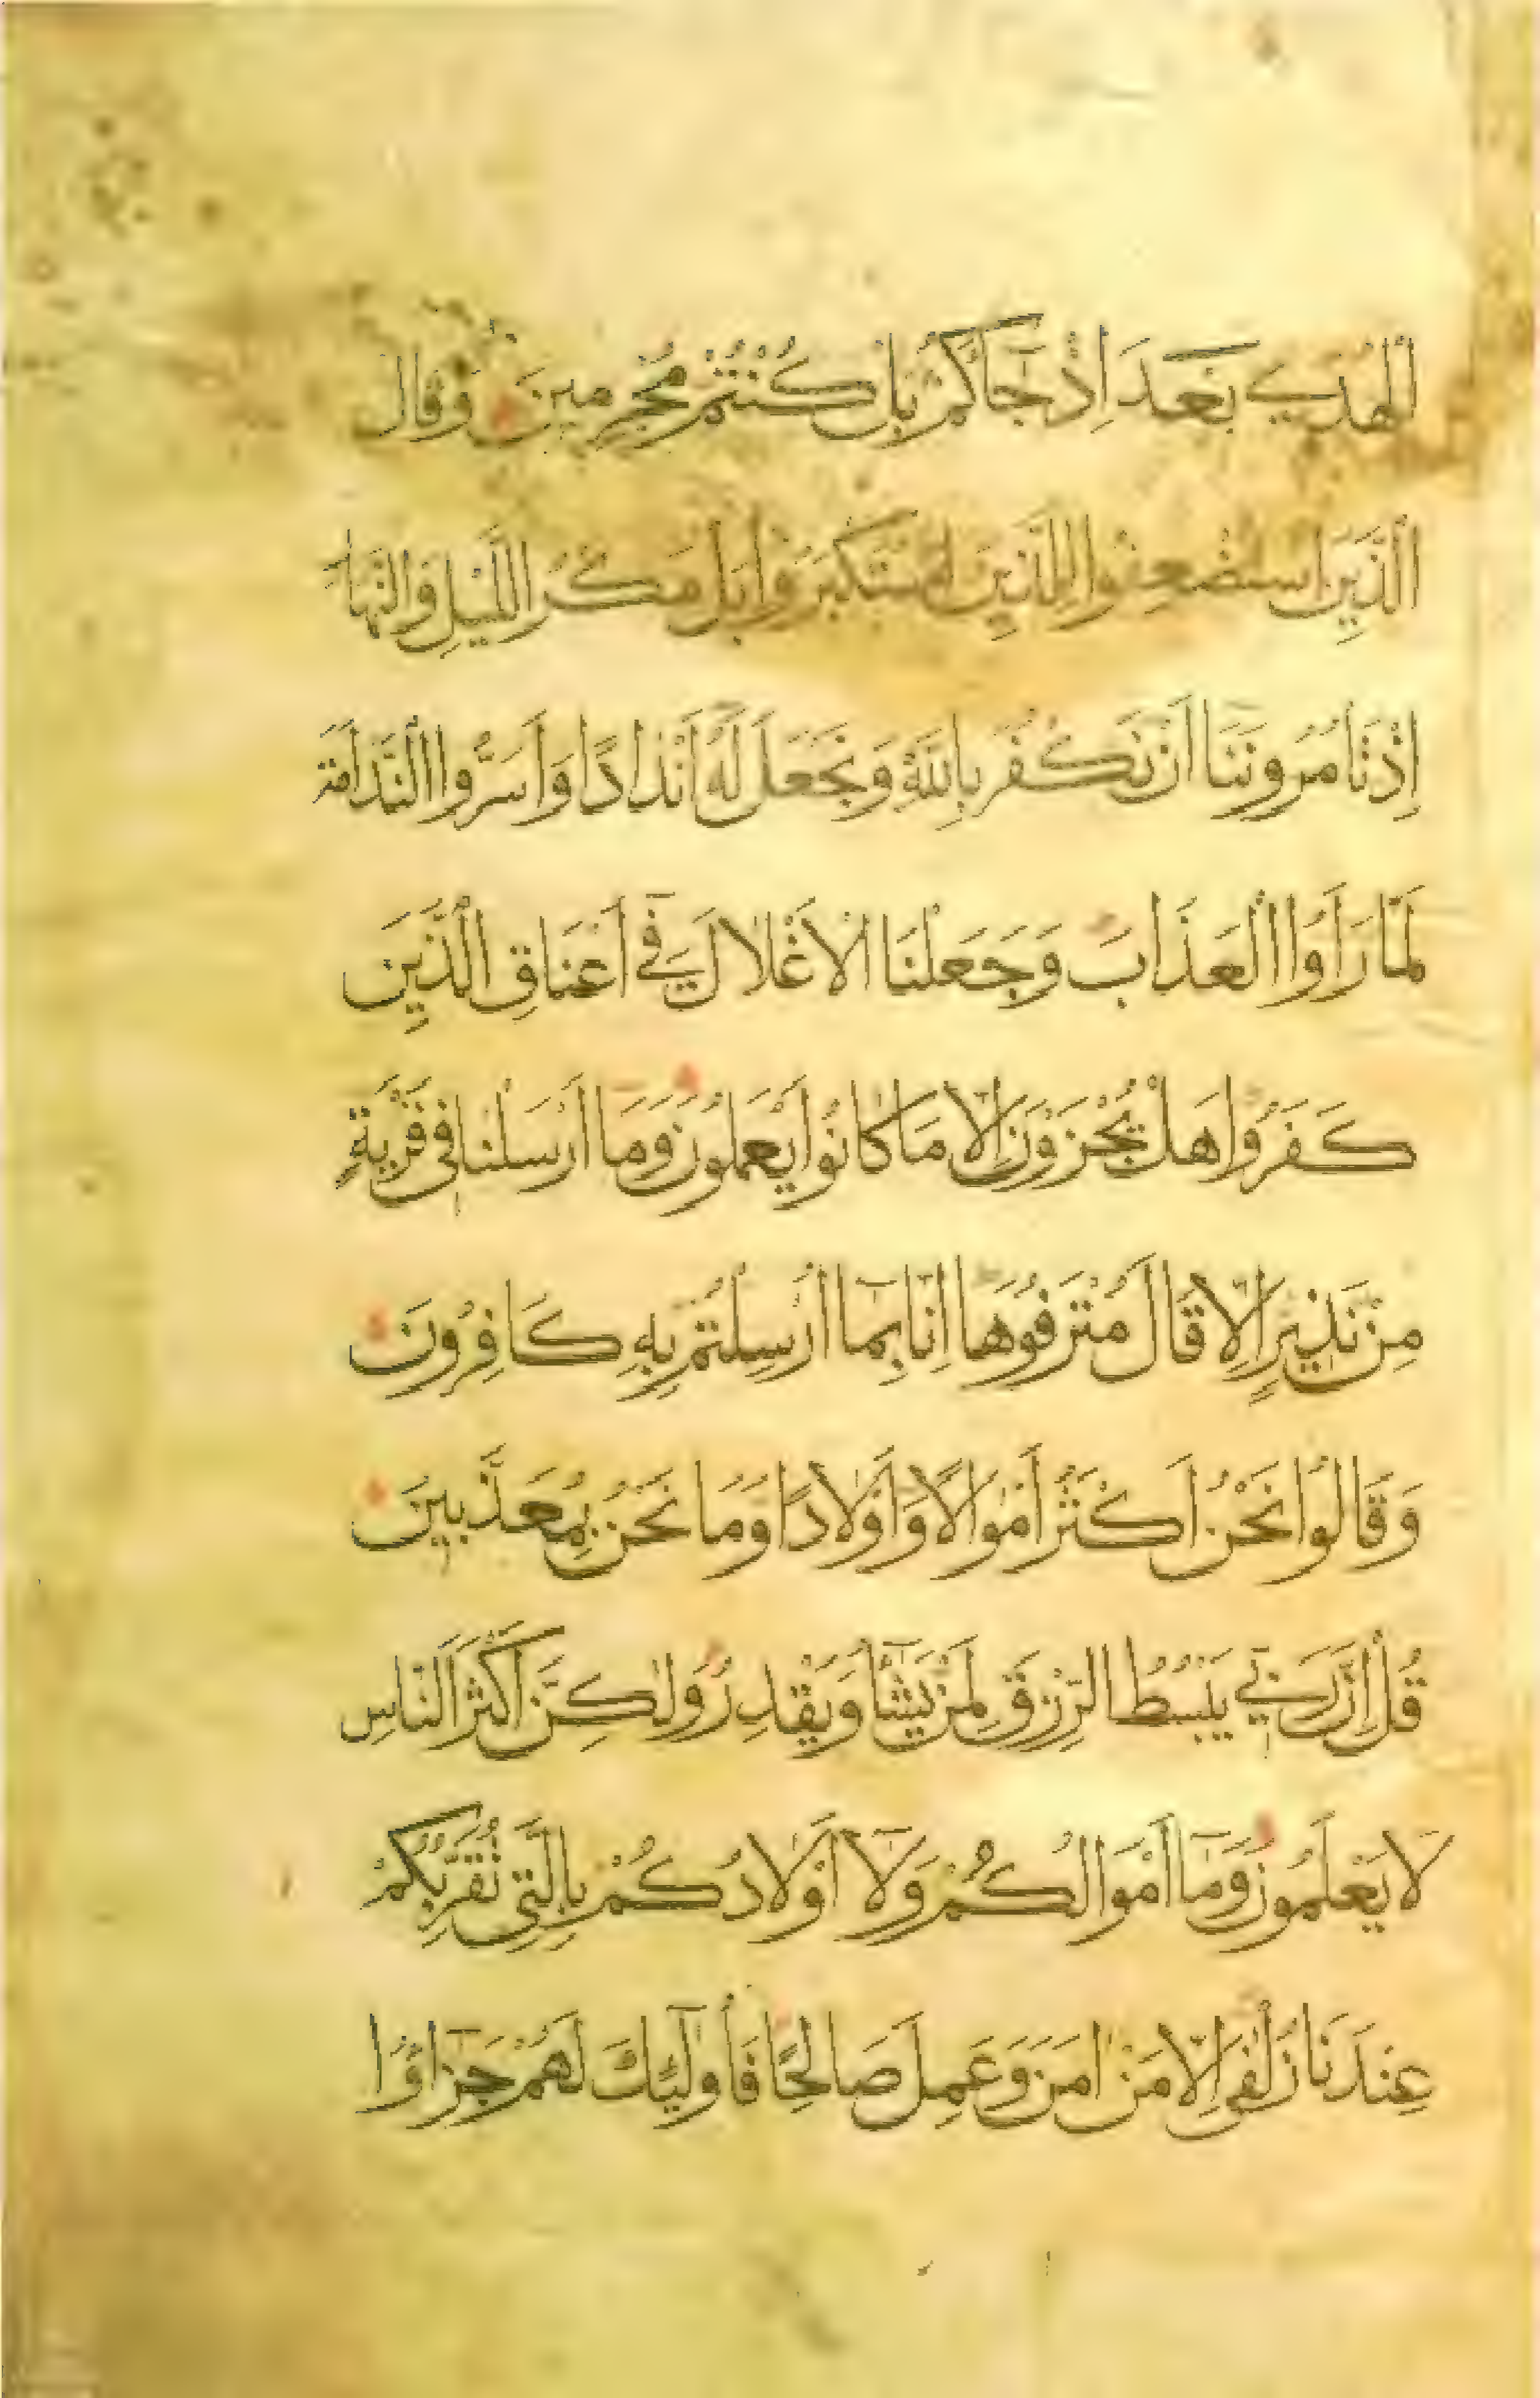 الْهُدٰي بَعْدَ اِذْ جَآكُمْ بَلْ كُنْتُمْ مُجْرِمِينَ وَقَالَ
الَّذِينَ اسْتُضْعِفُوا لِلَّذِينَ اسْتَكْبَرُوا بَلْ مَكْرُ الَّيْلِ وَالنَّهَارِ
اِذْ تَاْمُرُونَنَا اَنْ نَكْفُرَ بِاللّٰهِ وَنَجْعَلَ لَهُ اَنْدَادًا وَاَسَرُّوا النَّدَامَةَ
لَمَّا رَاَوُا الْعَذَابَ وَجَعَلْنَا الْاَغْلَالَ فِي اَعْنَاقِ الَّذِينَ
كَفَرُوا هَلْ يُجْزَوْنَ اِلَّا مَا كَانُوا يَعْمَلُونَ وَمَا اَرْسَلْنَا فِي قَرْيَةٍ
مِنْ نَذِيرٍ اِلَّا قَالَ مُتْرَفُوهَا اِنَّا بِمَا اُرْسِلْتُمْ بِهِ كَافِرُونَ
وَقَالُوا نَحْنُ اَكْثَرُ اَمْوَالًا وَاَوْلَادًا وَمَا نَحْنُ بِمُعَذَّبِينَ
قُلْ اِنَّ رَبِّي يَبْسُطُ الرِّزْقَ لِمَنْ يَشَآ وَيَقْدِرُ وَلٰكِنَّ اَكْثَرَ النَّاسِ
لَا يَعْلَمُونَ وَمَآ اَمْوَالُكُمْ وَلَآ اَوْلَادُكُمْ بِالَّتِي تُقَرِّبُكُمْ
عِنْدَنَا زُلْفٰي اِلَّا مَنْ اٰمَنَ وَعَمِلَ صَالِحًا فَاُولٰٓئِكَ لَهُمْ جَزَآؤُا